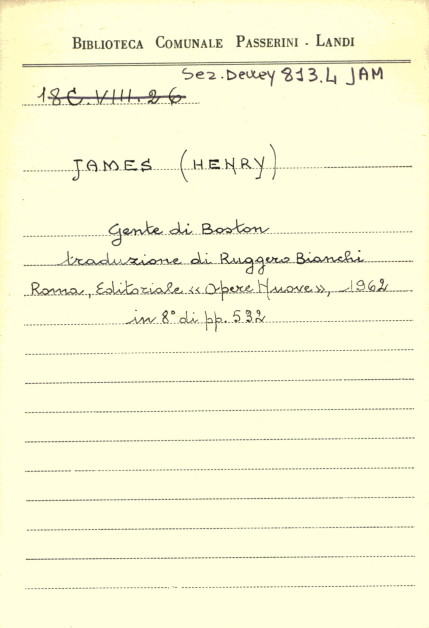 BIBLIOTECA COMUNALE PASSERINI - LANDI
Sez. Dewey 813.4 JAM
18 C. VIII. 26
JAMES (HENRY)
Gente di Boston
traduzione di Ruggero Bianchi
Roma, Editoriale «Opere Nuove», 1962
in 8° di pp. 532